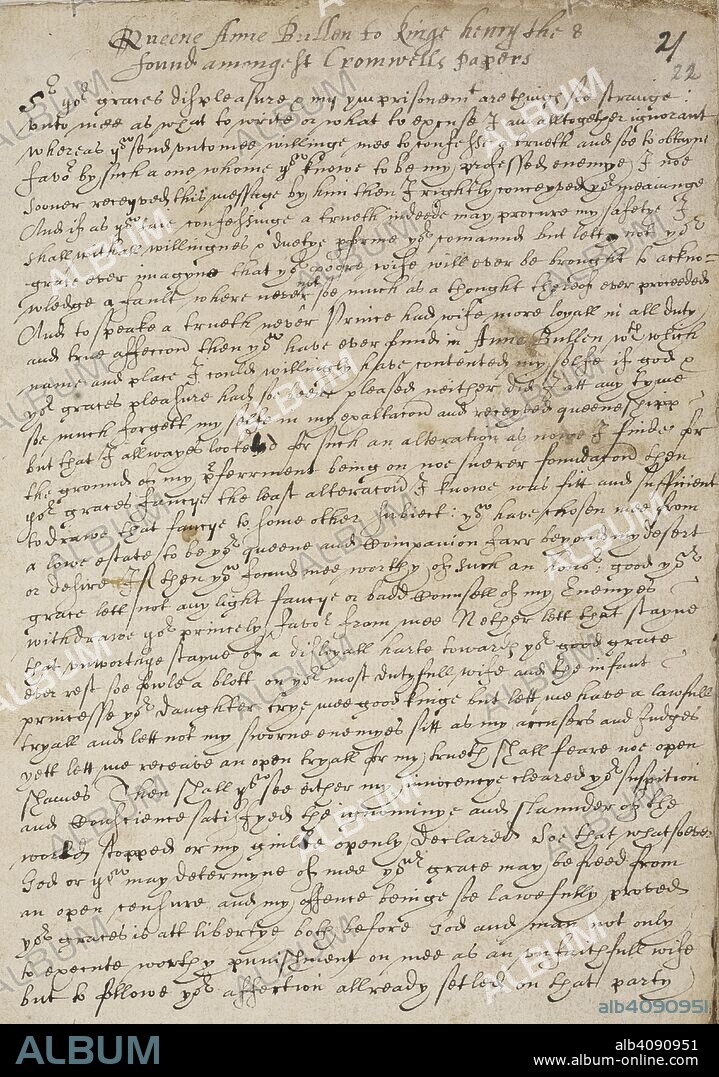 Queene Anne Bullen to kinge henry the 8
found amongest Cromwells papers
21
22
Sr yor graces displeasure & my ymprisonemt are things soe strange
unto mee as what to write or what to excuse I am alltogether ignorant
whereas you send unto mee willinge mee to confesse a trueth and soe to obtaine
favor by such a one whome you knowe to be my professed enemye I noe
sooner receyved this message by him then I rightly conceyved yor meaninge
And if as you saie confessinge a trueth indeede may procure my safetye I
shall with all willingnes & duetye pforme yor comaund but lett not yor
grace ever imagyne that yor poore wife will ever be brought to ackno-
wledge a fault where never soe much as a thought thereof ever proceeded
not
And to speake a trueth never Prince had wife more loyall in all duty
and true affeccon then you have ever found in Anne Bullen with which
name and place I could willingly have contented my selfe if god &
yor graces pleasure had soe been pleased neither did I att any tyme
soe much forgett my selfe in my exaltacon and receyved queeneshipp
but that I allwayes looked for such an alteration as nowe I finde for
the ground of my pferrment being on noe suerer foundacon then
yor graces fancye the least alteracon I knowe was fitt and sufficient
to drawe that fancye to some other subiect: you have chosen mee from
a lowe estate to be yor queene and Companion farr beyond my desert
or desire If then you found mee worthy of such an honor: good yor
grace lett not any light fancye or badd Counsell of my Enemyes
withdrawe yor princely favor from mee Nether lett that stayne
that unworthye stayne of a disloyall harte towards yor good grace
ever rest soe fowle a blott on yor most dutyfull wife and the infant
princesse yor daughter trye mee good kinge but lett me have a lawfull
tryall and lett not my sworne enemyes sitt as my accusers and Judges
yett lett me receave an open tryall for my trueth shall feare noe open
shames Then shall you see either my innocencye cleared yor suspition
and Conscience satisfyed the ignominye and slaunder of the
world stopped or my guilte openly declared Soe that whatsoever
God or you may determyne of mee yor grace may be freed from
an open censure and my offence beinge soe lawefully proved
yor graces is att libertye both before God and man not only
to execute worthy punishment on mee as an unfaithfull wife
but to followe yor affection allready setled on that party
ALBUM
alb4090951
ALBUM
alb4090951
www.album-online.com